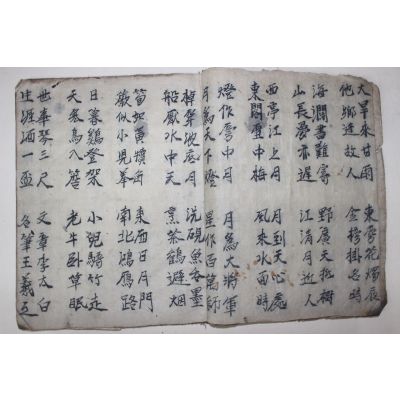 大旱來甘雨 東房花燭辰
他鄕逢故人 金榜掛名時
海濶書難寄 野廣天低樹
山長夢亦遲 江淸月近人
西亭江上月 月到天心處
東閣雪中梅 風來水面時
燈作房中月 月爲大將軍
月爲天下燈 星作百萬師
波底月 洗硯魚呑墨
船厭水中天 烹茶鶴避烟
筍如黃犢角 東西日月門
蕨似小兒拳 南北鴻鴈路
日暮鷄登架 小兒騎竹走
天寒鳥入簷 老牛臥草眠
世事琴三尺 文章李太白
生涯酒一盃 名筆王羲之